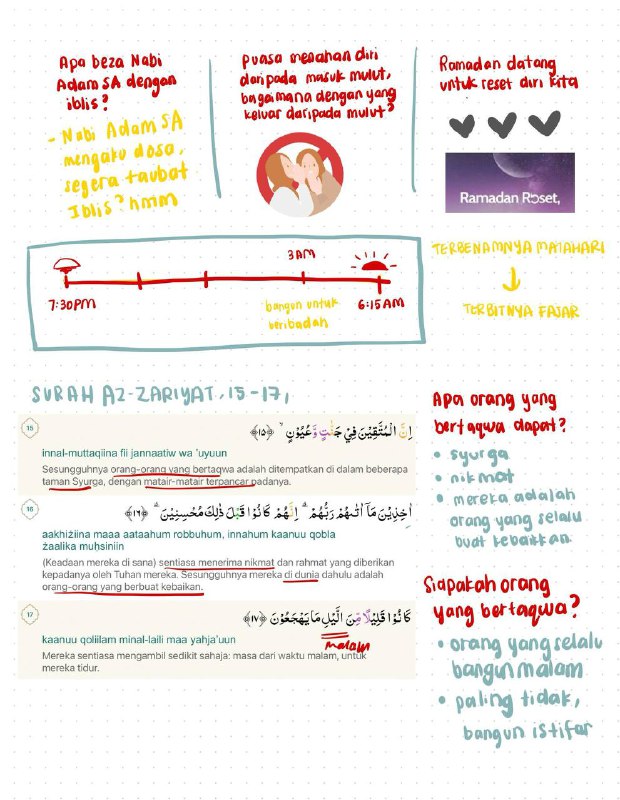 Apa beza Nabi
Adam SA dengan
iblis?
- Nabi Adam SA
mengaku dosa,
segera taubat
Iblis? hmm
puasa menahan diri
daripada masuk mulut,
bagaimana dengan yang
keluar daripada mulut?
Ramadan datang
untuk reset diri kita
Ramadan Reset,
3AM
7:30PM
bangun untuk
beribadah
6:15AM
TERBENAMNYA MATAHARI
TERBITNYA FAJAR
SURAH AZ-ZARIYAT, 15-17,
15
اِنَّ الْمُتَّقِيْنَ فِيْ جَنّٰتٍ وَّعُيُوْنٍ ۙ ﴿١٥﴾
innal-muttaqiina fii jannaatiw wa 'uyuun
Sesungguhnya orang-orang yang bertaqwa adalah ditempatkan di dalam beberapa
taman Syurga, dengan matair-matair terpancar padanya.
16
اٰخِذِيْنَ مَآ اٰتٰىهُمْ رَبُّهُمْ ۗ اِنَّهُمْ كَانُوْا قَبْلَ ذٰلِكَ مُحْسِنِيْنَ ۗ ﴿١٦﴾
aakhiżiina maaa aataahum robbuhum, innahum kaanuu qobla
żaalika muḥsiniin
(Keadaan mereka di sana) sentiasa menerima nikmat dan rahmat yang diberikan
kepadanya oleh Tuhan mereka. Sesungguhnya mereka di dunia dahulu adalah
orang-orang yang berbuat kebaikan.
17
كَانُوْا قَلِيْلًا مِّنَ الَّيْلِ مَا يَهْجَعُوْنَ ﴿١٧﴾
malam
kaanuu qoliilam minal-laili maa yahja'uun
Mereka sentiasa mengambil sedikit sahaja: masa dari waktu malam, untuk
mereka tidur.
Apa orang yang
bertaqwa dapat?
• syurga
• nikmat
• mereka adalah
orang yang selalu
buat kebaikkan.
Siapakah orang
yang bertaqwa?
• orang yang selalu
bangun malam
• paling tidak,
bangun istifar